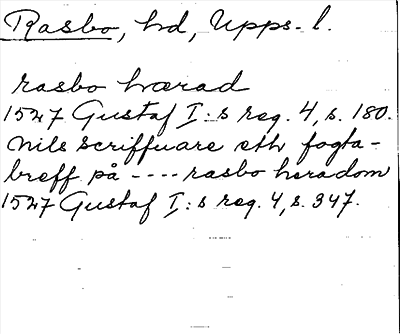 Rasbo, hd, Upps. l.
rasbo hærad
1527 Gustaf I:s reg. 4, s. 180.
Nils scriffuare eth fogta-
breff på ---- rasbo heradom
1527 Gustaf I:s reg. 4, s. 347.